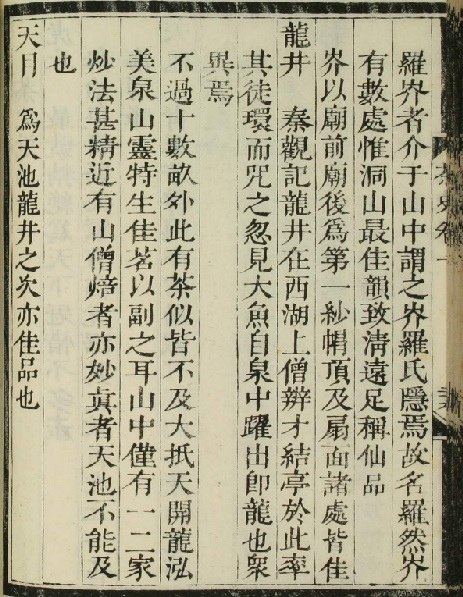 羅岕者介于山中謂之岕羅氏隱焉故名羅然岕
有數處惟洞山最佳韻致清遠足稱仙品
岕以廟前廟後爲第一紗帽頂及扇面諸處皆佳
龍井 秦觀記龍井在西湖上僧辨才結亭於此率
其徒環而咒之忽見大魚自泉中躍出卽龍也衆
異焉
不過十數畝外此有茶似皆不及大抵天開龍泓
美泉山靈特生佳茗以副之耳山中僅有一二家
炒法甚精近有山僧焙者亦妙眞者天池不能及
也
天目 爲天池龍井之次亦佳品也